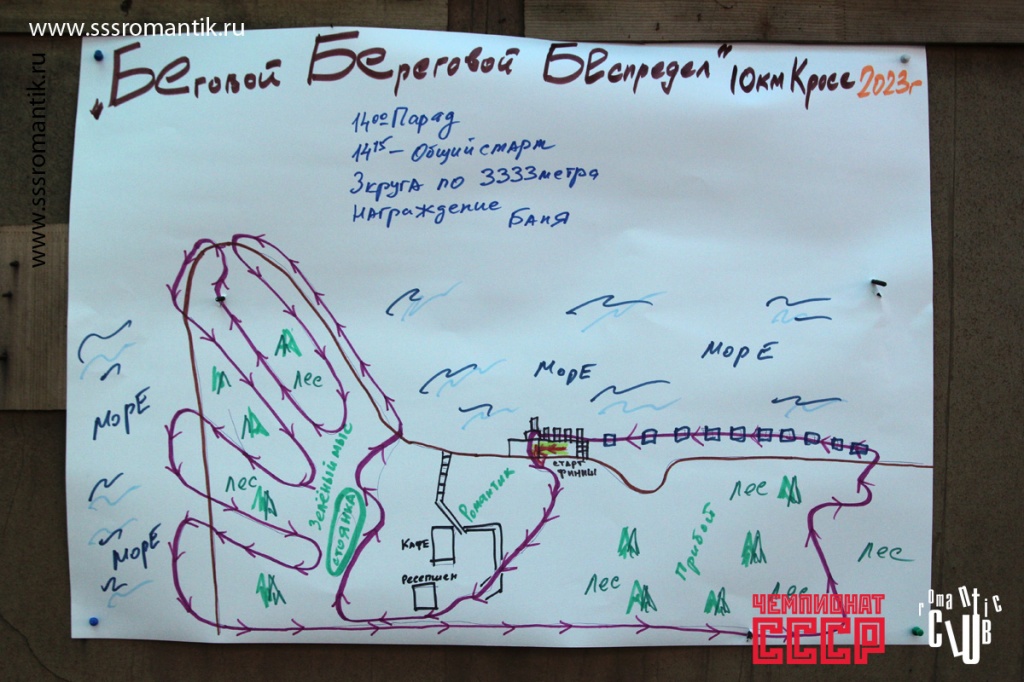 www.sssromantik.ru
www.sssromantik.ru
"Беговой Береговой Беспредел" 10км Кросс 2023г
14⁰⁰ Парад
14¹⁵ – Общий старт
3 круга по 3333 метра
Награждение Баня
Лес
Море
Море
Море
Лес
Море
Зелёный мыс
Стоянка
Романтик
Кафе
Ресепшен
Старт
Финиш
Лес
Прибой
Лес
Лес
Лес
ЧЕМПИОНАТ
СССР
romantic
CLUB